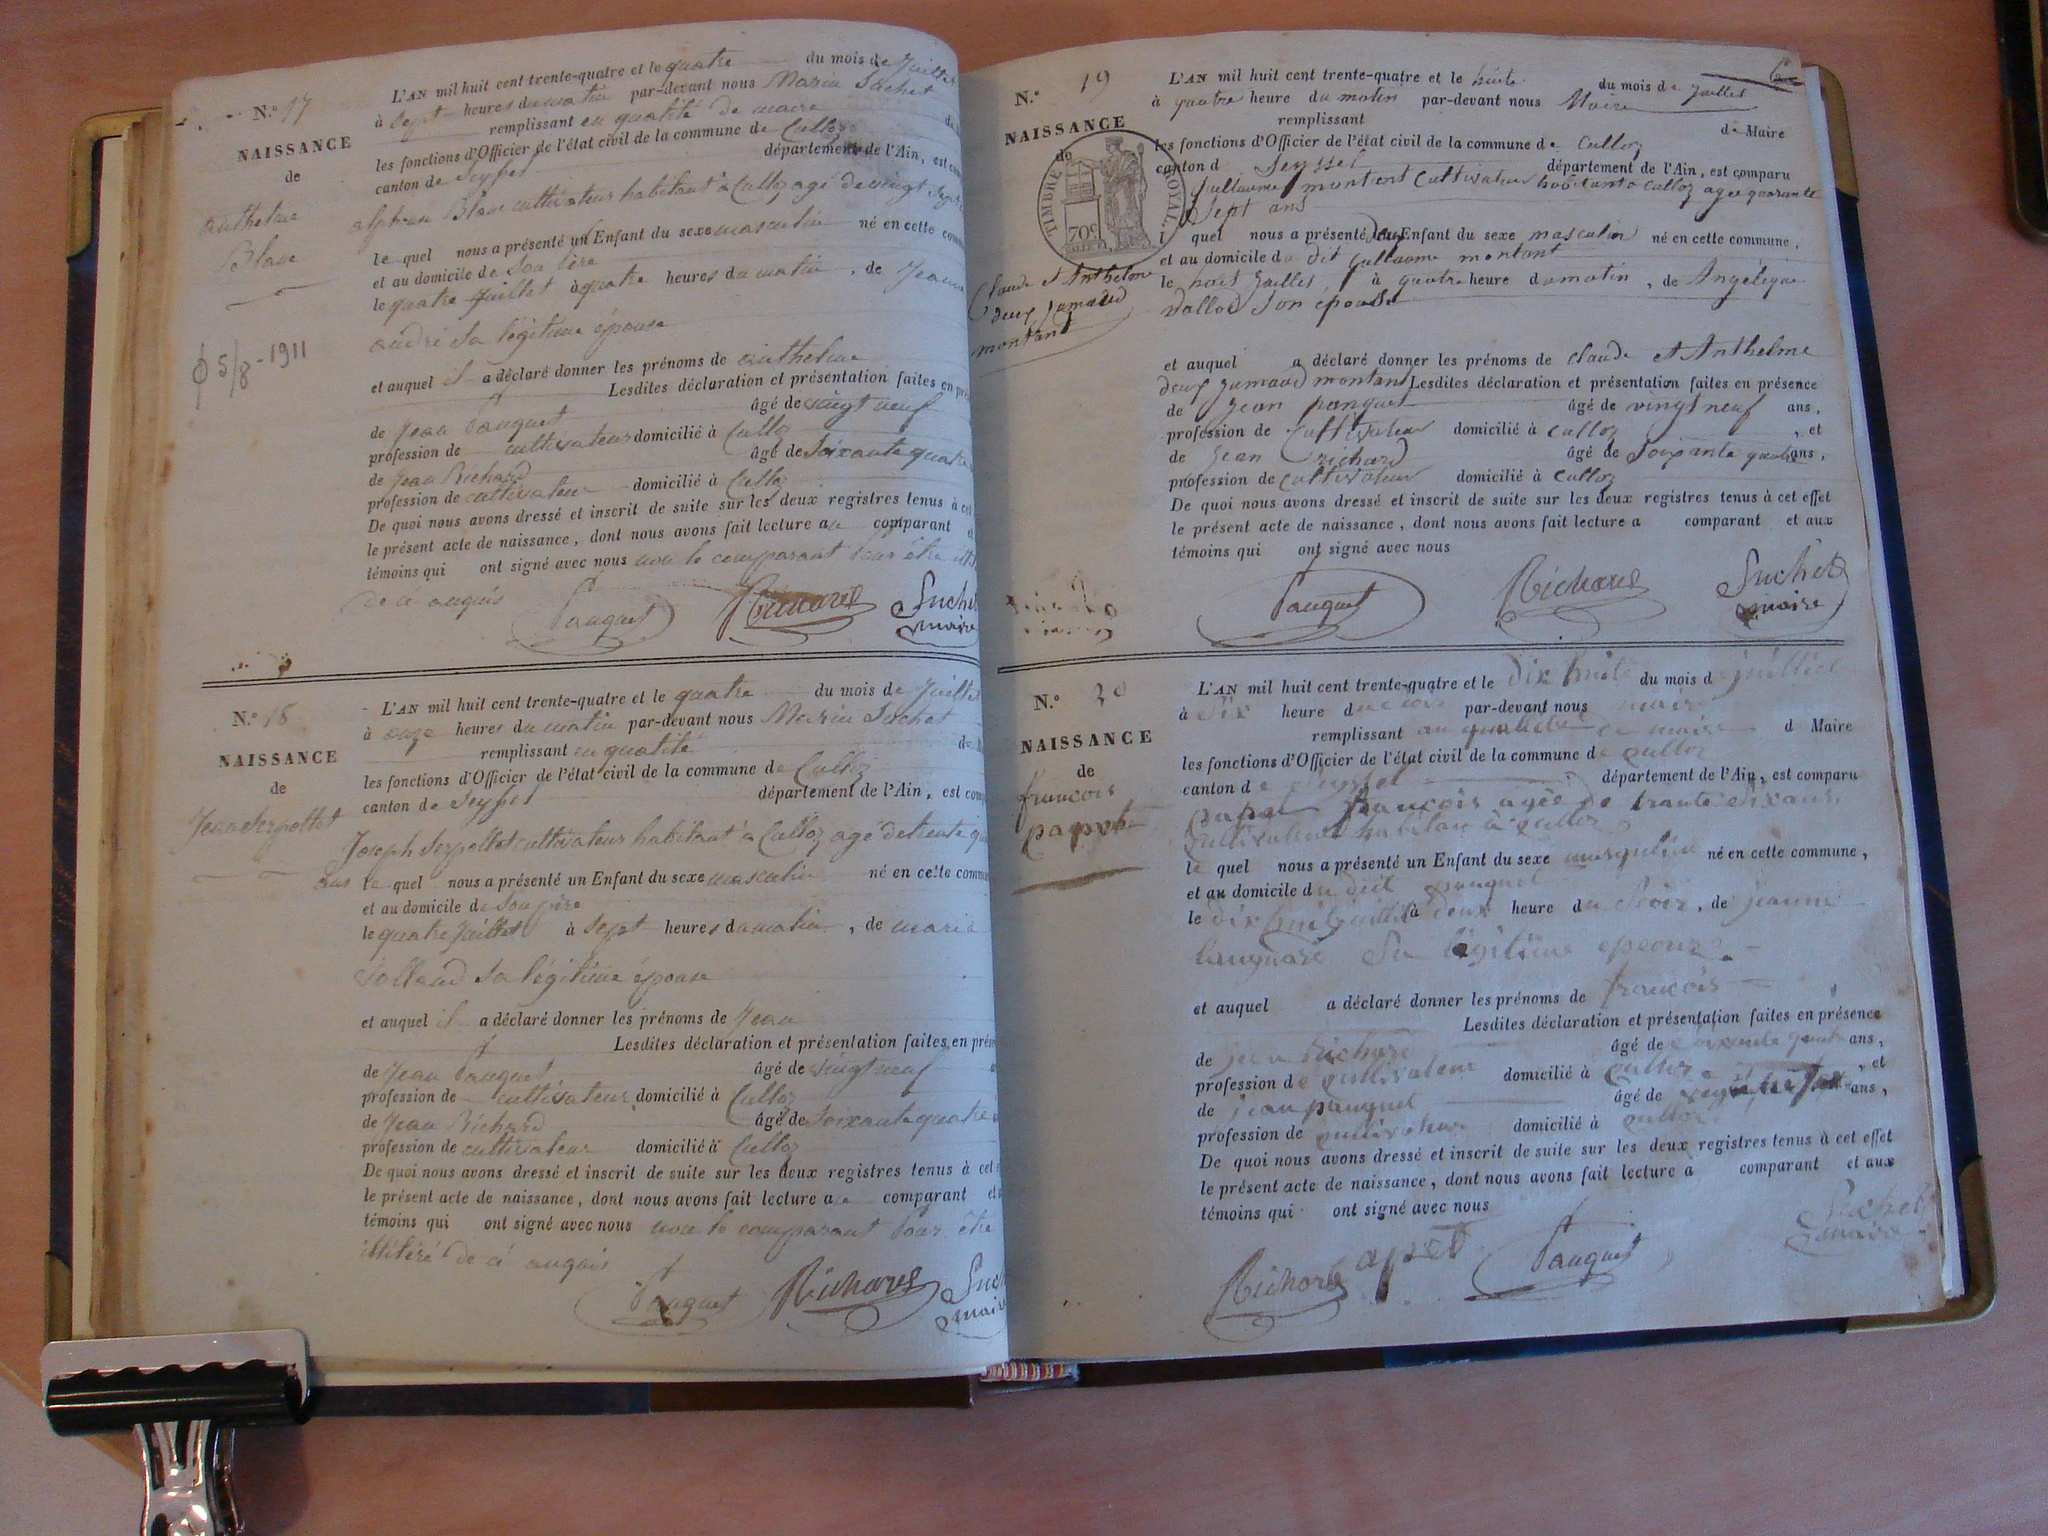 N.° 17
NAISSANCE
de
anthelme
Blanc
5/8-1911
L'AN mil huit cent trente-quatre et le quatre du mois de Juillet
à Sept heures du matin par-devant nous Marin Suchet
remplissant en qualité de maire
les fonctions d'Officier de l'état civil de la commune de Culloz
canton de Seyssel département de l'Ain, est
Blanc cultivateur habitant à Culloz agé de vingt
le quel nous a présenté un Enfant du sexe masculin né en cette
et au domicile de Son père
le quatre Juillet à quatre heures du matin, de
andré Sa légitime épouse
et auquel il a déclaré donner les prénoms de anthelme
Lesdites déclaration et présentation faites en
de Jean Pauquet âgé de vingt neuf
profession de cultivateur domicilié à Culloz
de Jean Richard âgé de Soixante quatre
profession de cultivateur domicilié à Culloz
De quoi nous avons dressé et inscrit de suite sur les deux registres tenus à
le présent acte de naissance, dont nous avons fait lecture au comparant
témoins qui ont signé avec nous non le comparant Pour être
de ce anquis
Pauquet Richard Suchet
maire
N.° 18
NAISSANCE
de
Jean Serpollet
L'AN mil huit cent trente-quatre et le quatre du mois de Juillet
à onze heures du matin par-devant nous Marin Suchet
remplissant en qualité
les fonctions d'Officier de l'état civil de la commune de Culloz
canton de Seyssel département de l'Ain, est
Joseph Serpollet cultivateur habitant à Culloz agé de trente
ans le quel nous a présenté un Enfant du sexe masculin né en cette
et au domicile de Son père
le quatre Juillet à Sept heures du matin, de maria
Sa légitime épouse
et auquel il a déclaré donner les prénoms de Jean
Lesdites déclaration et présentation faites en
de Jean Pauquet âgé de vingt neuf
profession de cultivateur domicilié à Culloz
de Jean Richard âgé de Soixante quatre
profession de cultivateur domicilié à Culloz
De quoi nous avons dressé et inscrit de suite sur les deux registres tenus à cet
le présent acte de naissance, dont nous avons fait lecture au comparant
témoins qui ont signé avec nous non le comparant Pour être
illitéré de ce anquis
Pauquet Richard
maire
N.° 19
NAISSANCE
de
TIMBRE ROYAL
70c
Claude et Anthelme
deux jumaud
montant
L'AN mil huit cent trente-quatre et le huite du mois de Juillet
à quatre heure du matin par-devant nous Maire
remplissant de Maire
les fonctions d'Officier de l'état civil de la commune de Culloz
canton d Seyssel département de l'Ain, est comparu
Guillaume montant Cultivateur habitant a culloz age quarante
Sept ans
l quel nous a présenté deux Enfant du sexe masculin né en cette commune,
et au domicile du dit Guillaume montant
le huit Juillet, à quatre heure du matin, de Angélique
Son epouse
et auquel a déclaré donner les prénoms de Claude et Anthelme
deux Jumaud montant Lesdites déclaration et présentation faites en présence
de Jean pauquet âgé de vingt neuf ans,
profession de Cultivateur domicilié à culloz, et
de Jean richard âgé de Soixante quatre ans,
profession de cultivateur domicilié à culloz
De quoi nous avons dressé et inscrit de suite sur les deux registres tenus à cet effet
le présent acte de naissance, dont nous avons fait lecture a comparant et aux
témoins qui ont signé avec nous
Pauquet Richard Suchet
maire
N.° 20
NAISSANCE
de
françois
papet
L'AN mil huit cent trente-quatre et le dix huit du mois d juilliet
à Six heure du par-devant nous maire
remplissant de maire d Maire
les fonctions d'Officier de l'état civil de la commune de culloz
canton de département de l'Ain, est comparu
françois agée de trante Six ans,
cultivateur habitan à culloz
le quel nous a présenté un Enfant du sexe né en cette commune,
et au domicile du
le dix huit à deux heure du Soir, de jeanne
Sa légitime
et auquel a déclaré donner les prénoms de françois
Lesdites déclaration et présentation faites en présence
de jean Richard âgé de quatre ans,
profession de cultivateur domicilié à culloz, et
de jean pauquet âgé de ans,
profession de cultivateur domicilié à culloz
De quoi nous avons dressé et inscrit de suite sur les deux registres tenus à cet effet
le présent acte de naissance, dont nous avons fait lecture a comparant et aux
témoins qui ont signé avec nous
Suchet
maire
Richard Pauquet